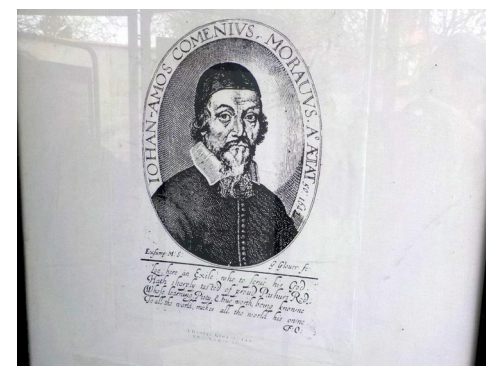 IOHAN-AMOS COMENIVS, MORAVVS. A° ÆTAT 50: 1642
G Glover fe:
Loe, here an Exile, who to serue his God,
Hath sharply tasted of proud Pashurs Rod,
Whose learning, Piety, & true worth, being knowne
To all the world, makes all the world his owne
F.Q.